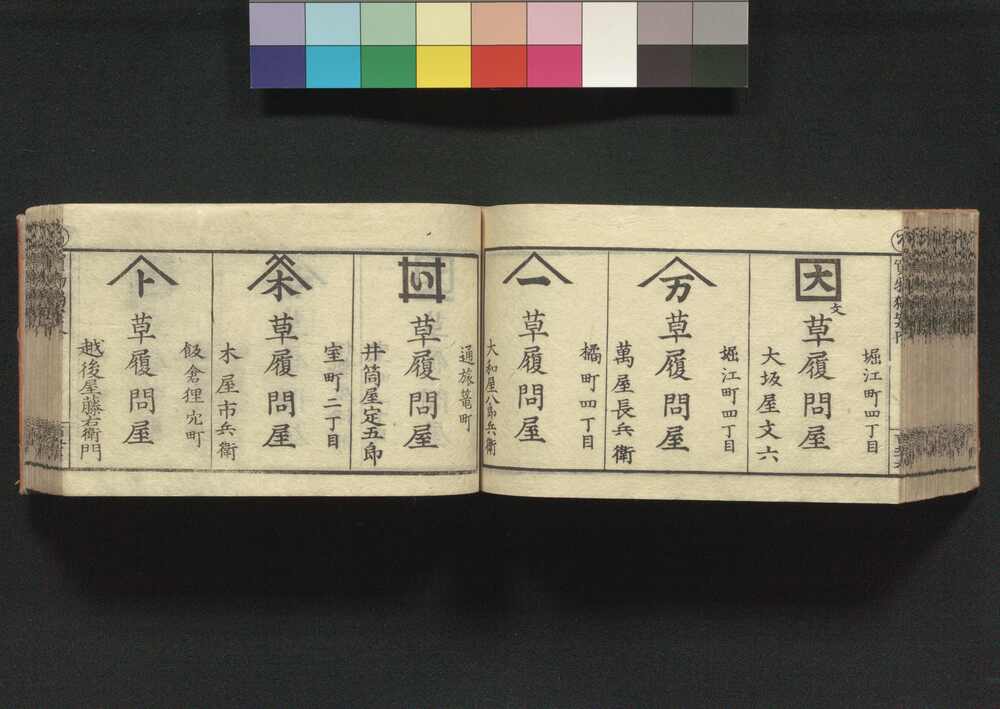 堀江町四丁目
大
文
草履問屋
大坂屋文六
堀江町四丁目
万
草履問屋
萬屋長兵衛
橘町四丁目
一
草履問屋
大和屋八郎兵衛
通旅篭町
い
草履問屋
井筒屋定五郎
室町二丁目
木
草履問屋
木屋市兵衛
飯倉狸穴町
ト
草履問屋
越後屋藤右衛門